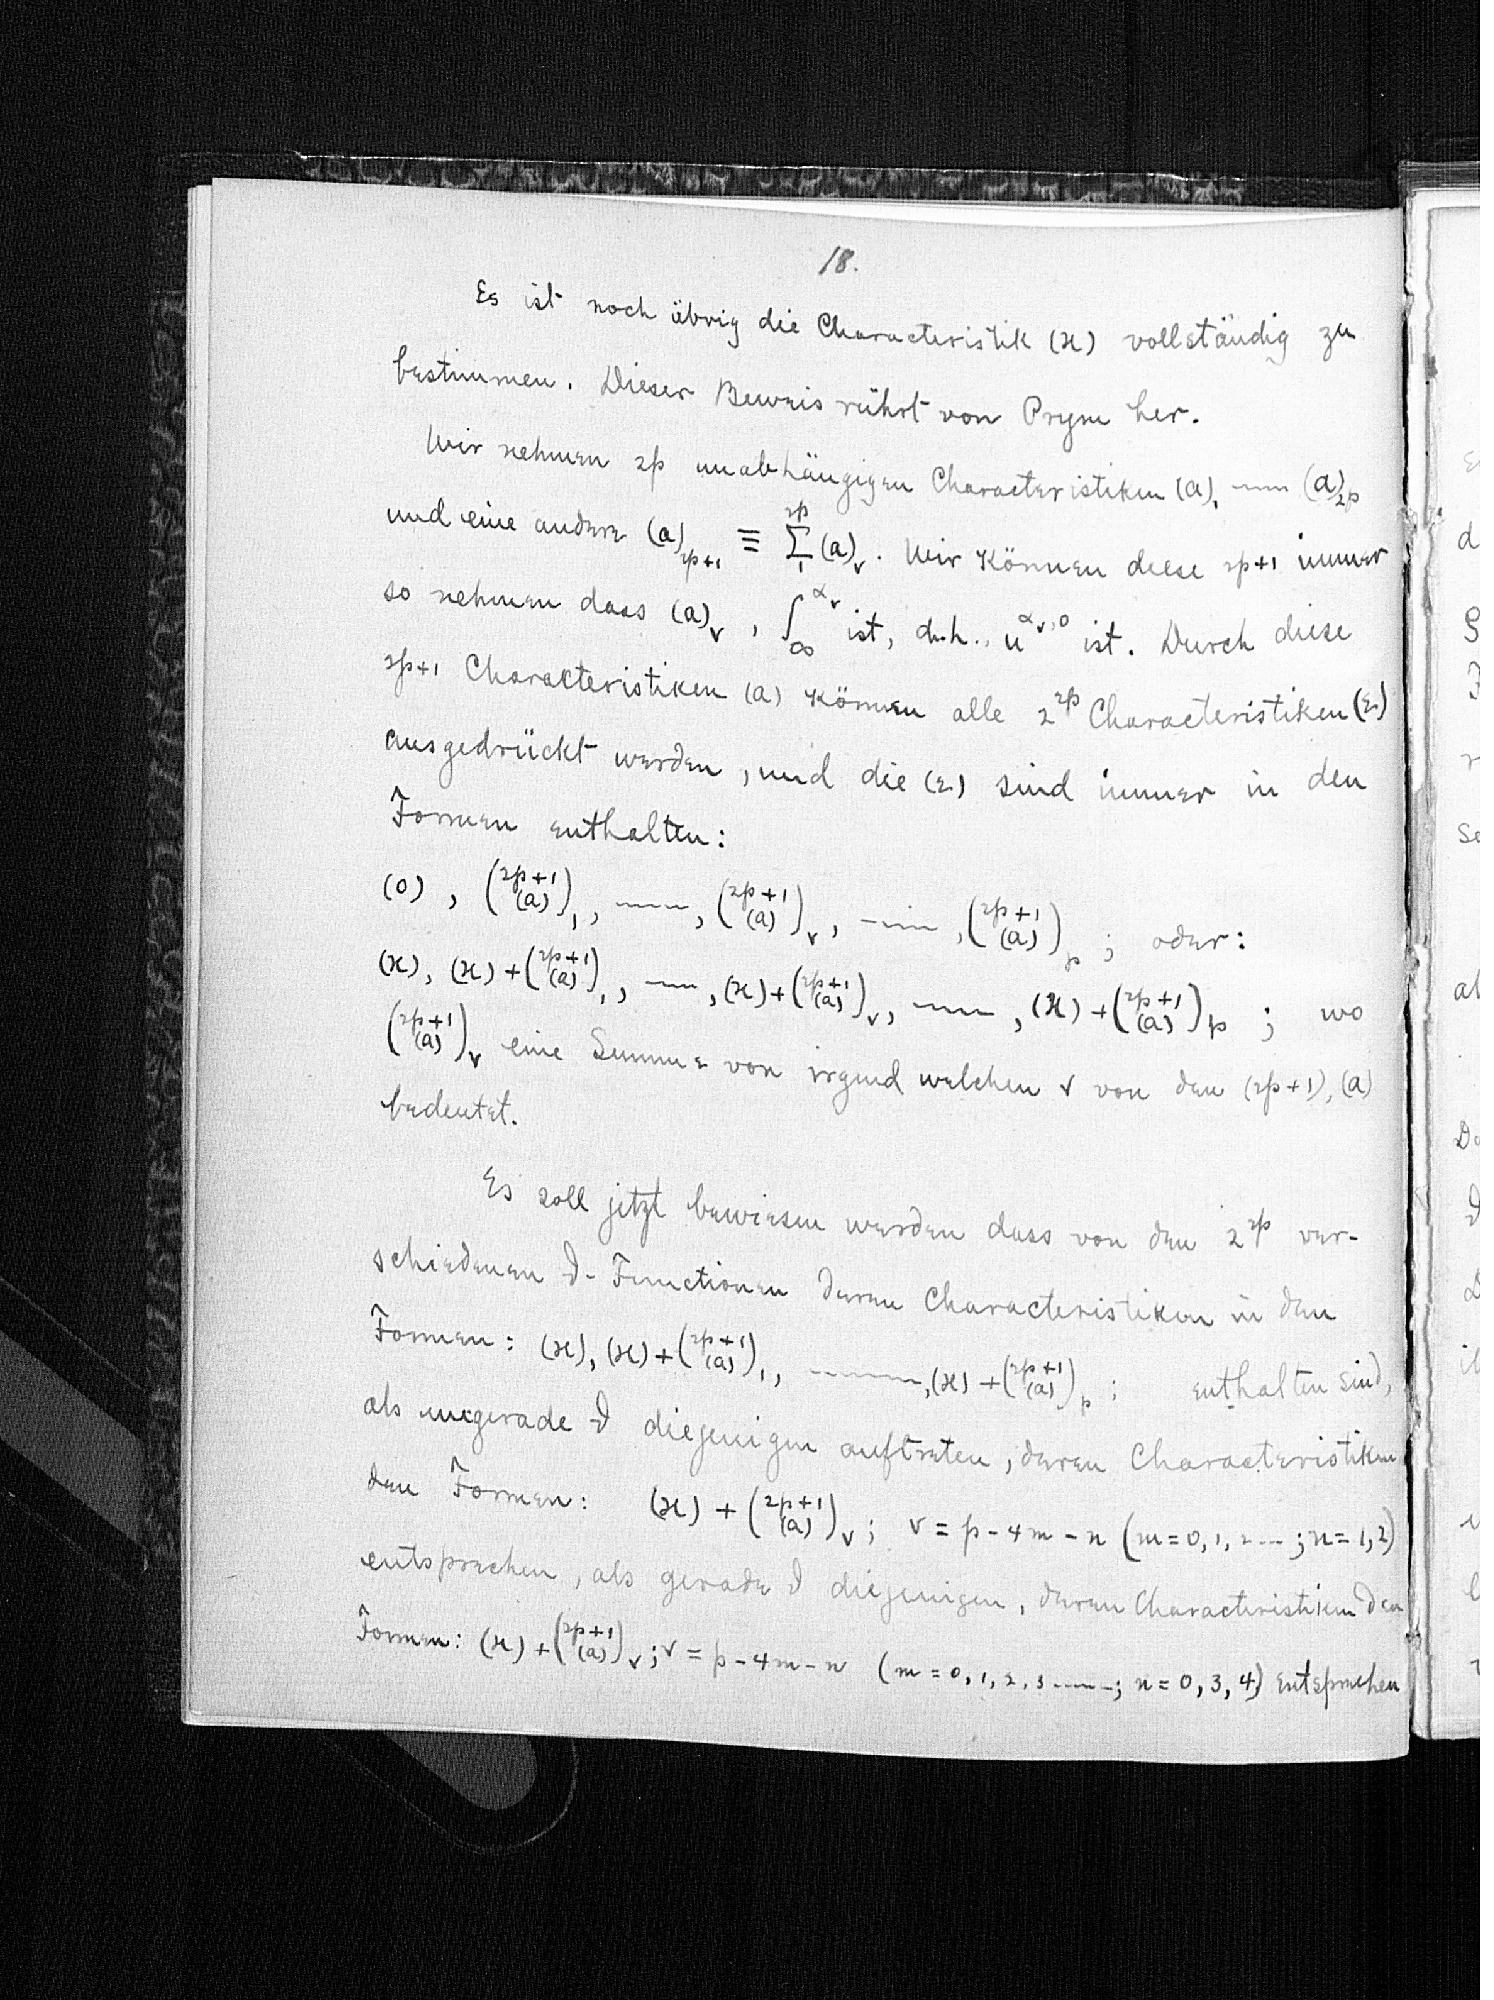 18.
Es ist noch übrig die Characteristik (ϰ) vollständig zu
bestimmen. Dieser Beweis rührt von Prym her.
Wir nehmen 2p unabhängigen Characteristiken (a)₁ —— (a)₂ₚ
und eine andere (a)₂ₚ₊₁ ≡ ∑₁²ᵖ (a)ᵥ. Wir können diese 2p+1 immer
so nehmen dass (a)ᵥ, ∫_∞^{αᵥ} ist, d.h., u^{αᵥ,0} ist. Durch diese
2p+1 Characteristiken (a) können alle 2²ᵖ Characteristiken (ε)
ausgedrückt werden, und die (ε) sind immer in den
Formen enthalten:
(0), (2p+1 (a))₁, ——, (2p+1 (a))ᵥ, ——, (2p+1 (a))ₚ ; oder:
(ϰ), (ϰ)+(2p+1 (a))₁, ——, (ϰ)+(2p+1 (a))ᵥ, ——, (ϰ)+(2p+1 (a))ₚ ; wo
(2p+1 (a))ᵥ eine Summe von irgend welchen ν von den (2p+1), (a)
bedeutet.
Es soll jetzt bewiesen werden dass von den 2²ᵖ ver-
schiedenen ϑ-Functionen deren Characteristiken in den
Formen: (ϰ), (ϰ)+(2p+1 (a))₁, ———, (ϰ)+(2p+1 (a))ₚ ; enthalten sind,
als ungerade ϑ diejenigen auftreten, deren Characteristiken
den Formen: (ϰ) + (2p+1 (a))ᵥ; ν = p-4m-n (m=0,1,2...; n=1,2)
entsprechen, als gerade ϑ diejenigen, deren Characteristiken den
Formen: (ϰ)+(2p+1 (a))ᵥ; ν = p-4m-n (m=0,1,2,3......; n=0,3,4) entsprechen